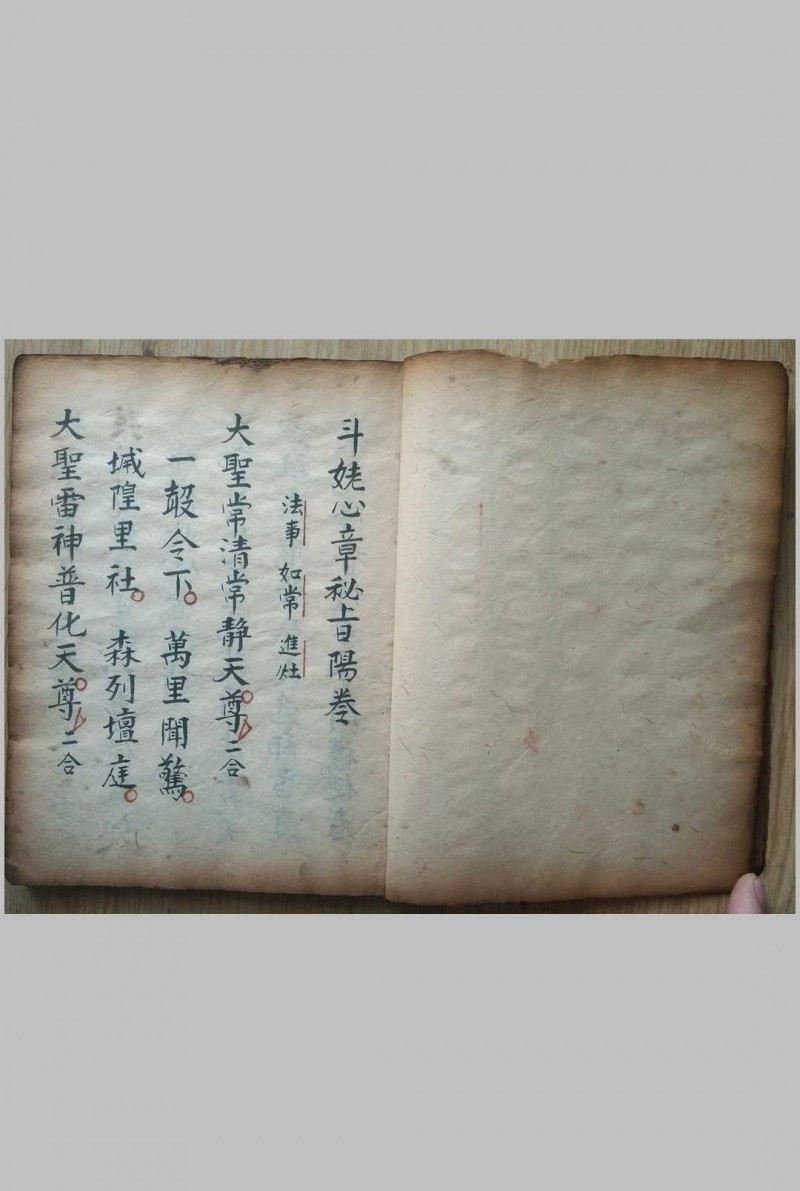 斗姥心章秘旨陽卷
法事 如常 進壇
大聖常清常靜天尊 二合
一皷令下 萬里聞驚
城隍里社 森列壇庭
大聖雷神普化天尊 二合